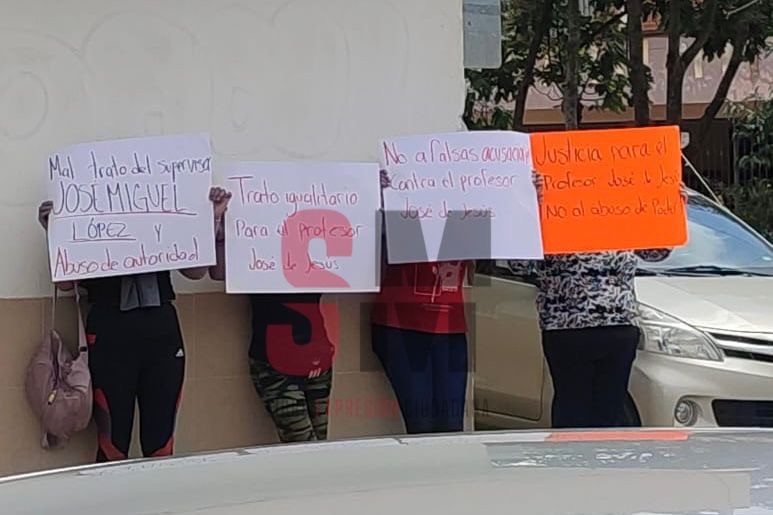 Mal trato del supervisor
JOSE MIGUEL
LÓPEZ y
Abuso de autoridad
Trato igualitario
Para el profesor
José de Jesús
No a falsas acusacio
Contra el profesor
José de Jesús
Justicia para el
Profesor José de Jesú
No al abuso de Poder
SM
SM
EXPRESIÓN CIUDADANA